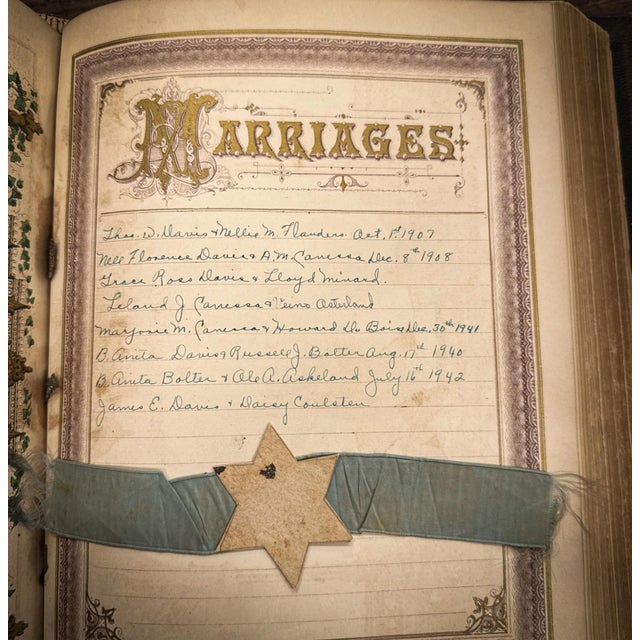 MARRIAGES
Theo. W. Davis & Nellie M. Flanders. Oct, 1st 1907
Nell Florence Davis & A. M. Canessa Dec. 8th 1908
Grace Ross Davis & Lloyd Minard.
Leland J. Canessa & Osterland
Marjorie M. Canessa & Howard Du Bois Dec, 30th 1941
B. Anita Davis & Russell J. Bolter Aug. 17th 1940
B. Anita Bolter & Ole A. Askeland July 16th 1942
James E. Davis & Daisy Coulsten